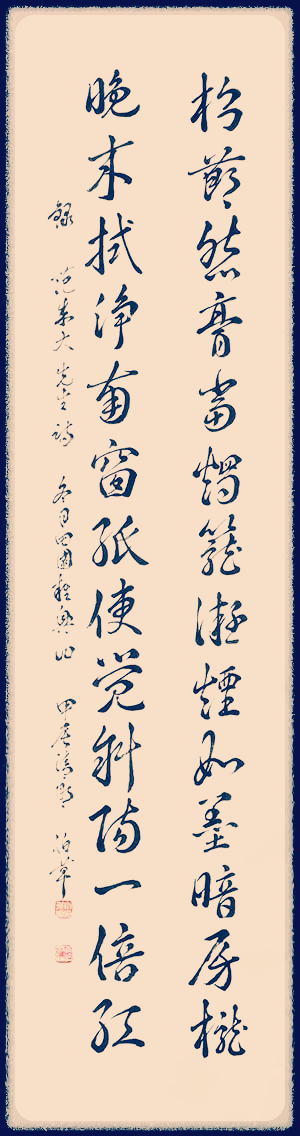 松節然膏當燭籠凝煙如墨暗房櫳
晚來拭淨南窗紙便覺斜陽一倍紅
錄 范成大先生詩 冬日田園雜興 甲辰清明